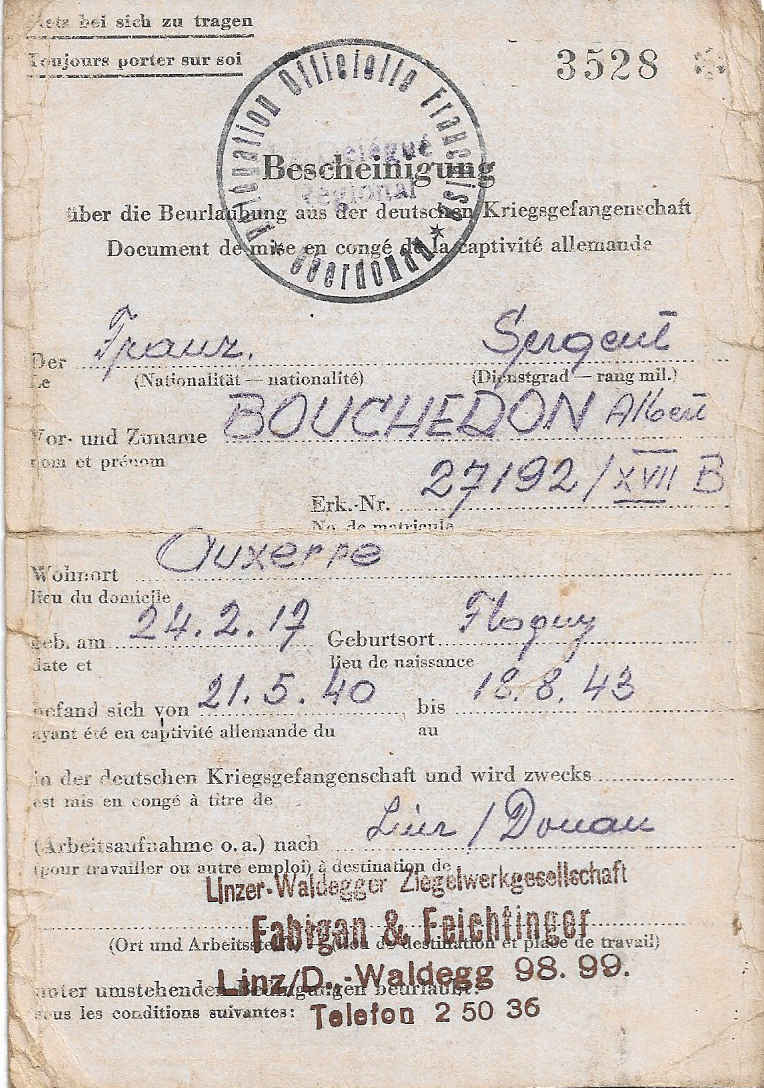 Stets bei sich zu tragen
Toujours porter sur soi
3528
Délégation Officielle Française
Le Délégué
Régional
* Oberdonau *
Bescheinigung
über die Beurlaubung aus der deutschen Kriegsgefangenschaft
Document de mise en congé de la captivité allemande
Der Franz. Sergent
Le (Nationalität — nationalité) (Dienstgrad — rang mil.)
Vor- und Zuname BOUCHEDON Albert
nom et prénom
Erk.-Nr. 27192/XVII B
No de matricule
Wohnort Auxerre
lieu du domicile
geb. am 24.2.17 Geburtsort Flogny
date et lieu de naissance
befand sich von 21.5.40 bis 18.8.43
ayant été en captivité allemande du au
in der deutschen Kriegsgefangenschaft und wird zwecks
est mis en congé à titre de
(Arbeitsaufnahme o. a.) nach Linz / Donau
(pour travailler ou autre emploi) à destination de
Linzer-Waldegger Ziegelwerkgesellschaft
Fabigan & Feichtinger
(Ort und Arbeitsstelle) de destination et place de travail)
Linz/D.,-Waldegg 98. 99.
unter umstehenden Bedingungen beurlaubt.
sous les conditions suivantes:
Telefon 2 50 36